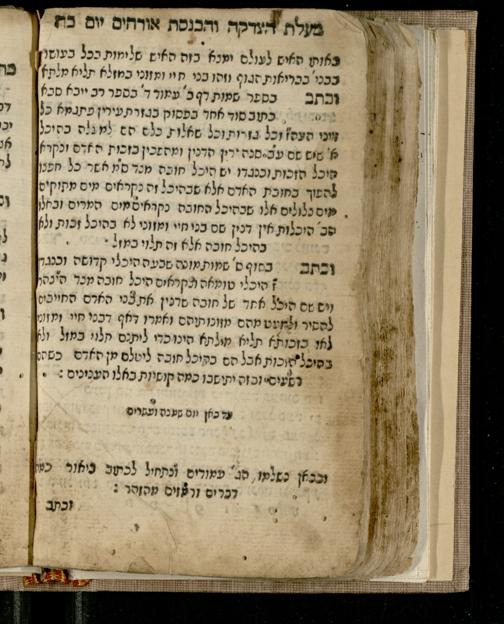 מעלת הצדקה והכנסת אורחים יום כח
באותו האיש לעולם ימנא בזה האיש שלימות בכל בעושר
בבני בבריאות הגוף וזהו בני חיי ומזוני במזלא תליא מלתא
וכתב בספר שמות דף ב' עמוד ד' בספר רב ייבא סבא
כתוב סוד אחד בפסוק בגזרת עירין פתגמא כל
דיני העה"ז וכל גזרות וכל שאלות כלם הם למעלה בהיכל
א' שיש שם ע"ב סנהדרין הדנין ומהפכין בזכות האדם ונקרא
היכל הזכות וכנגדו יש היכל חובה מצד ס"מ אשר כל חפצו
להפוך בחובת האדם אלא שבהיכל זה נקראים מים מתוקים
מים צלולים אלו שבהיכל החובה נקראים מים המרים ובאלו
הב' היכלות אין דנין שם בני חיי ומזוני לא בהיכל זכות ולא
בהיכל חובה אלא זה תלוי במזל
וכתב בסוף ס' שמות מונה שבעה היכלי קדושה וכנגדן
ז' היכלי טומאה ונקראים היכל חובה מצד היצהר
ויש שם היכל אחד של חובה שדנין את בני האדם החייבים
להסיר ולמעט מהם מזונותיהם ואמרו דאף דבני חיי ומזוני
לאו בזכותא תליא מלתא היינו כדי ליתנם תלוי במזל ולא
בהיכל הזכות אבל הם בהיכל חובה ליטלם מן האדם כשהם
רשעים וכזה יתישבו כמה קושיות באלו הענינים :
עד כאן יום שמנה ועשרים
ובכאן נשלמו הג' עמודים ונתחיל לכתוב ביאור כמה
דברים ורמזים מהזהר :
וכתב